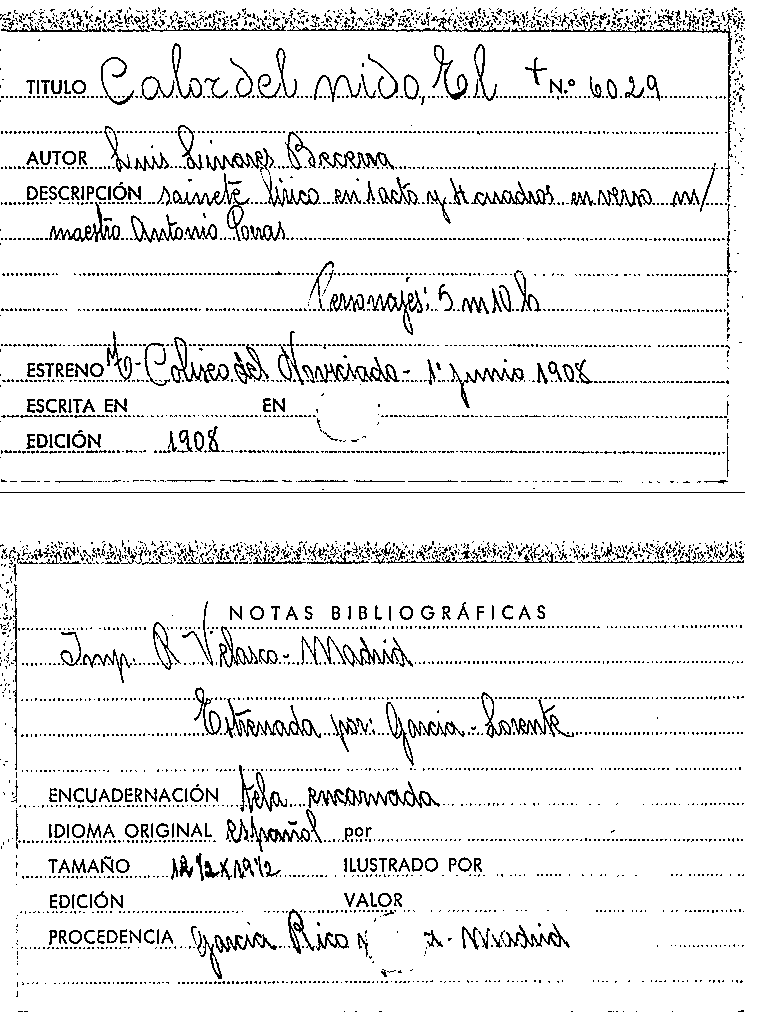 TITULO Calor del nido, El + N.º 6029
AUTOR Luis Linares Becerra
DESCRIPCIÓN sainete lírico en 1 acto y 4 cuadros en verso m/
maestro Antonio Porras
Personajes: 5 m 10 h
ESTRENO Mº- Coliseo del Noviciado - 1º junio 1908
ESCRITA EN EN
EDICIÓN 1908
NOTAS BIBLIOGRÁFICAS
Imp. R Velasco - Madrid
Estrenada por: García - Lorente
ENCUADERNACIÓN tela encarnada
IDIOMA ORIGINAL español por
TAMAÑO 12 1/2 x 19 1/2 ILUSTRADO POR
EDICIÓN VALOR
PROCEDENCIA García Rico - Madrid